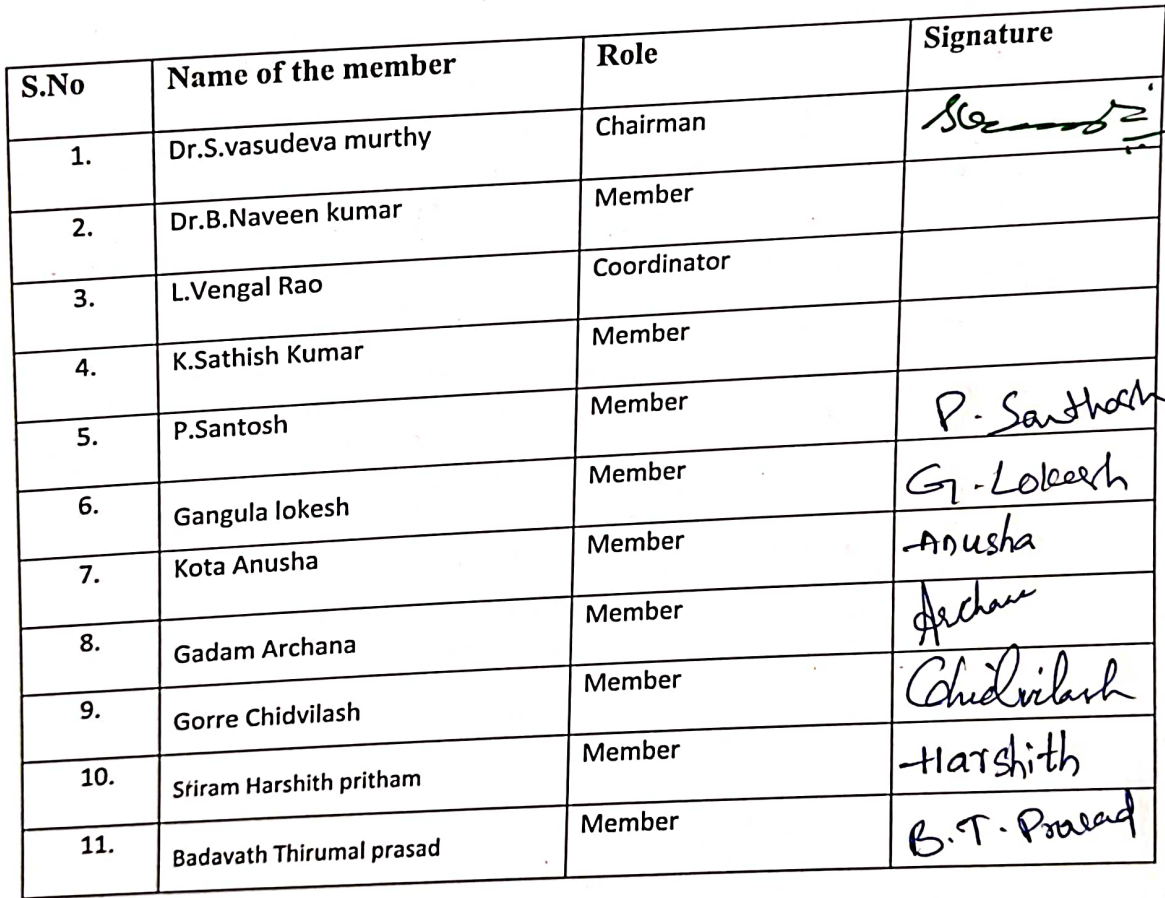 S.No Name of the member Role Signature
1. Dr.S.vasudeva murthy Chairman
2. Dr.B.Naveen kumar Member
3. L.Vengal Rao Coordinator
4. K.Sathish Kumar Member
5. P.Santosh Member P. Santhosh
6. Gangula lokesh Member G. Lokesh
7. Kota Anusha Member Anusha
8. Gadam Archana Member Archana
9. Gorre Chidvilash Member Chidvilash
10. Sriram Harshith pritham Member Harshith
11. Badavath Thirumal prasad Member B.T. Prasad